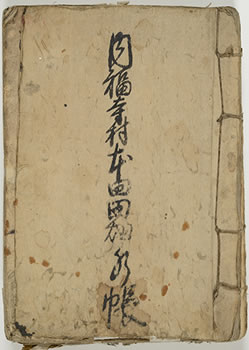 円福寺村本田畑水帳